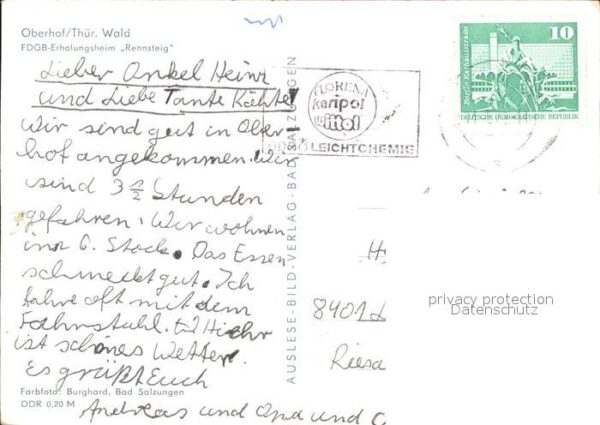 Oberhof/Thür. Wald
FDGB-Erholungsheim „Rennsteig"
Lieber Onkel Heinz
und Liebe Tante Käthe
Wir sind gut in Ober
hof angekommen. Wir
sind 3 1/2 Stunden
gefahren. Wir wohnen
im 6. Stock. Das Essen
schmeckt gut. Ich
fahre oft mit dem
Fahrstuhl. Hiehr
ist schönes Wetter.
Es grüßt Euch
Andreas und Opa und O
Farbfoto: Burghard, Bad Salzungen
DDR 0,20 M
AUSLESE-BILD-VERLAG-BAD SALZUNGEN
FLORENA
karipol
wittol
LEICHTCHEMIE
10
Berlin, Rathausstraße
DEUTSCHE DEMOKRATISCHE REPUBLIK
H
8401
Riesa
privacy protection
Datenschutz